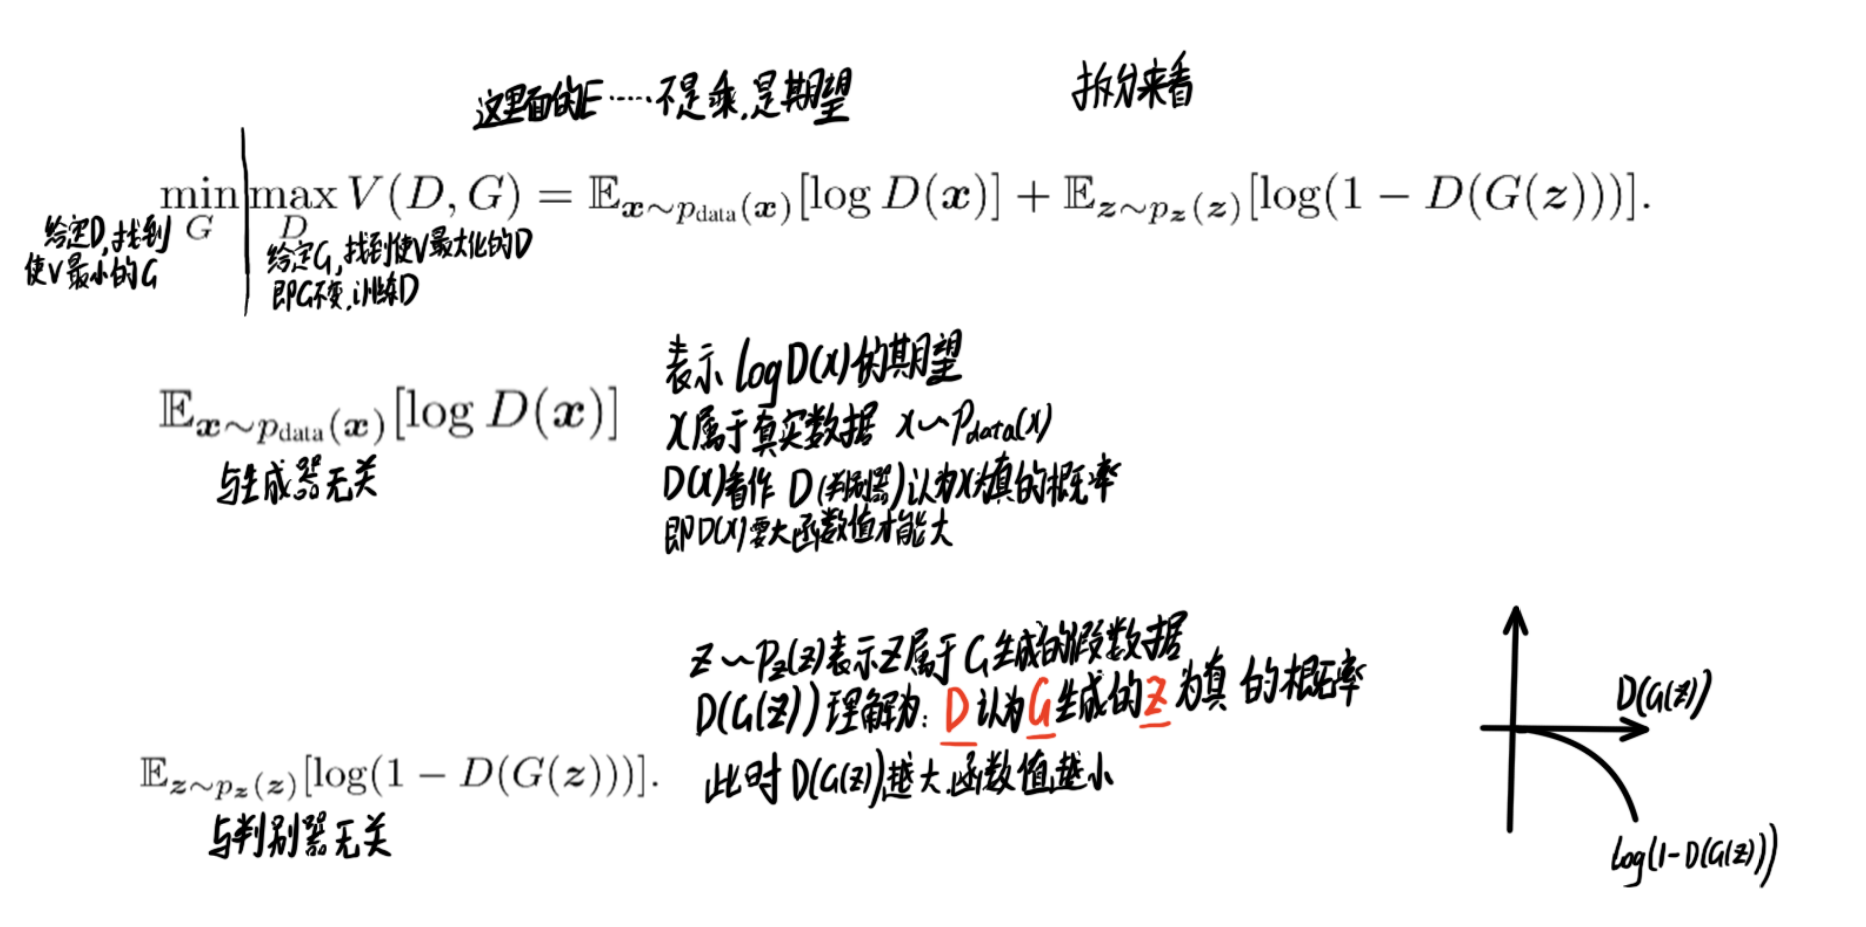 这里面的E……不是乘,是期望
拆分来看
min max V(D, G) = 𝔼x∼pdata(x)[log D(x)] + 𝔼z∼pz(z)[log(1 − D(G(z)))].
G D
给定D,找到
使V最小的G
给定G,找到使V最大化的D
即G不变,训练D
𝔼x∼pdata(x)[log D(x)]
与生成器无关
表示 log D(x)的期望
x属于真实数据 x∼Pdata(x)
D(x)看作 D(判别器)认为x为真的概率
即D(x)要大函数值才能大
z∼Pz(z)表示z属于G生成的假数据
D(G(z))理解为: D认为G生成的z为真的概率
此时D(G(z))越大,函数值越小
𝔼z∼pz(z)[log(1 − D(G(z)))].
与判别器无关
D(G(z))
log(1-D(G(z)))